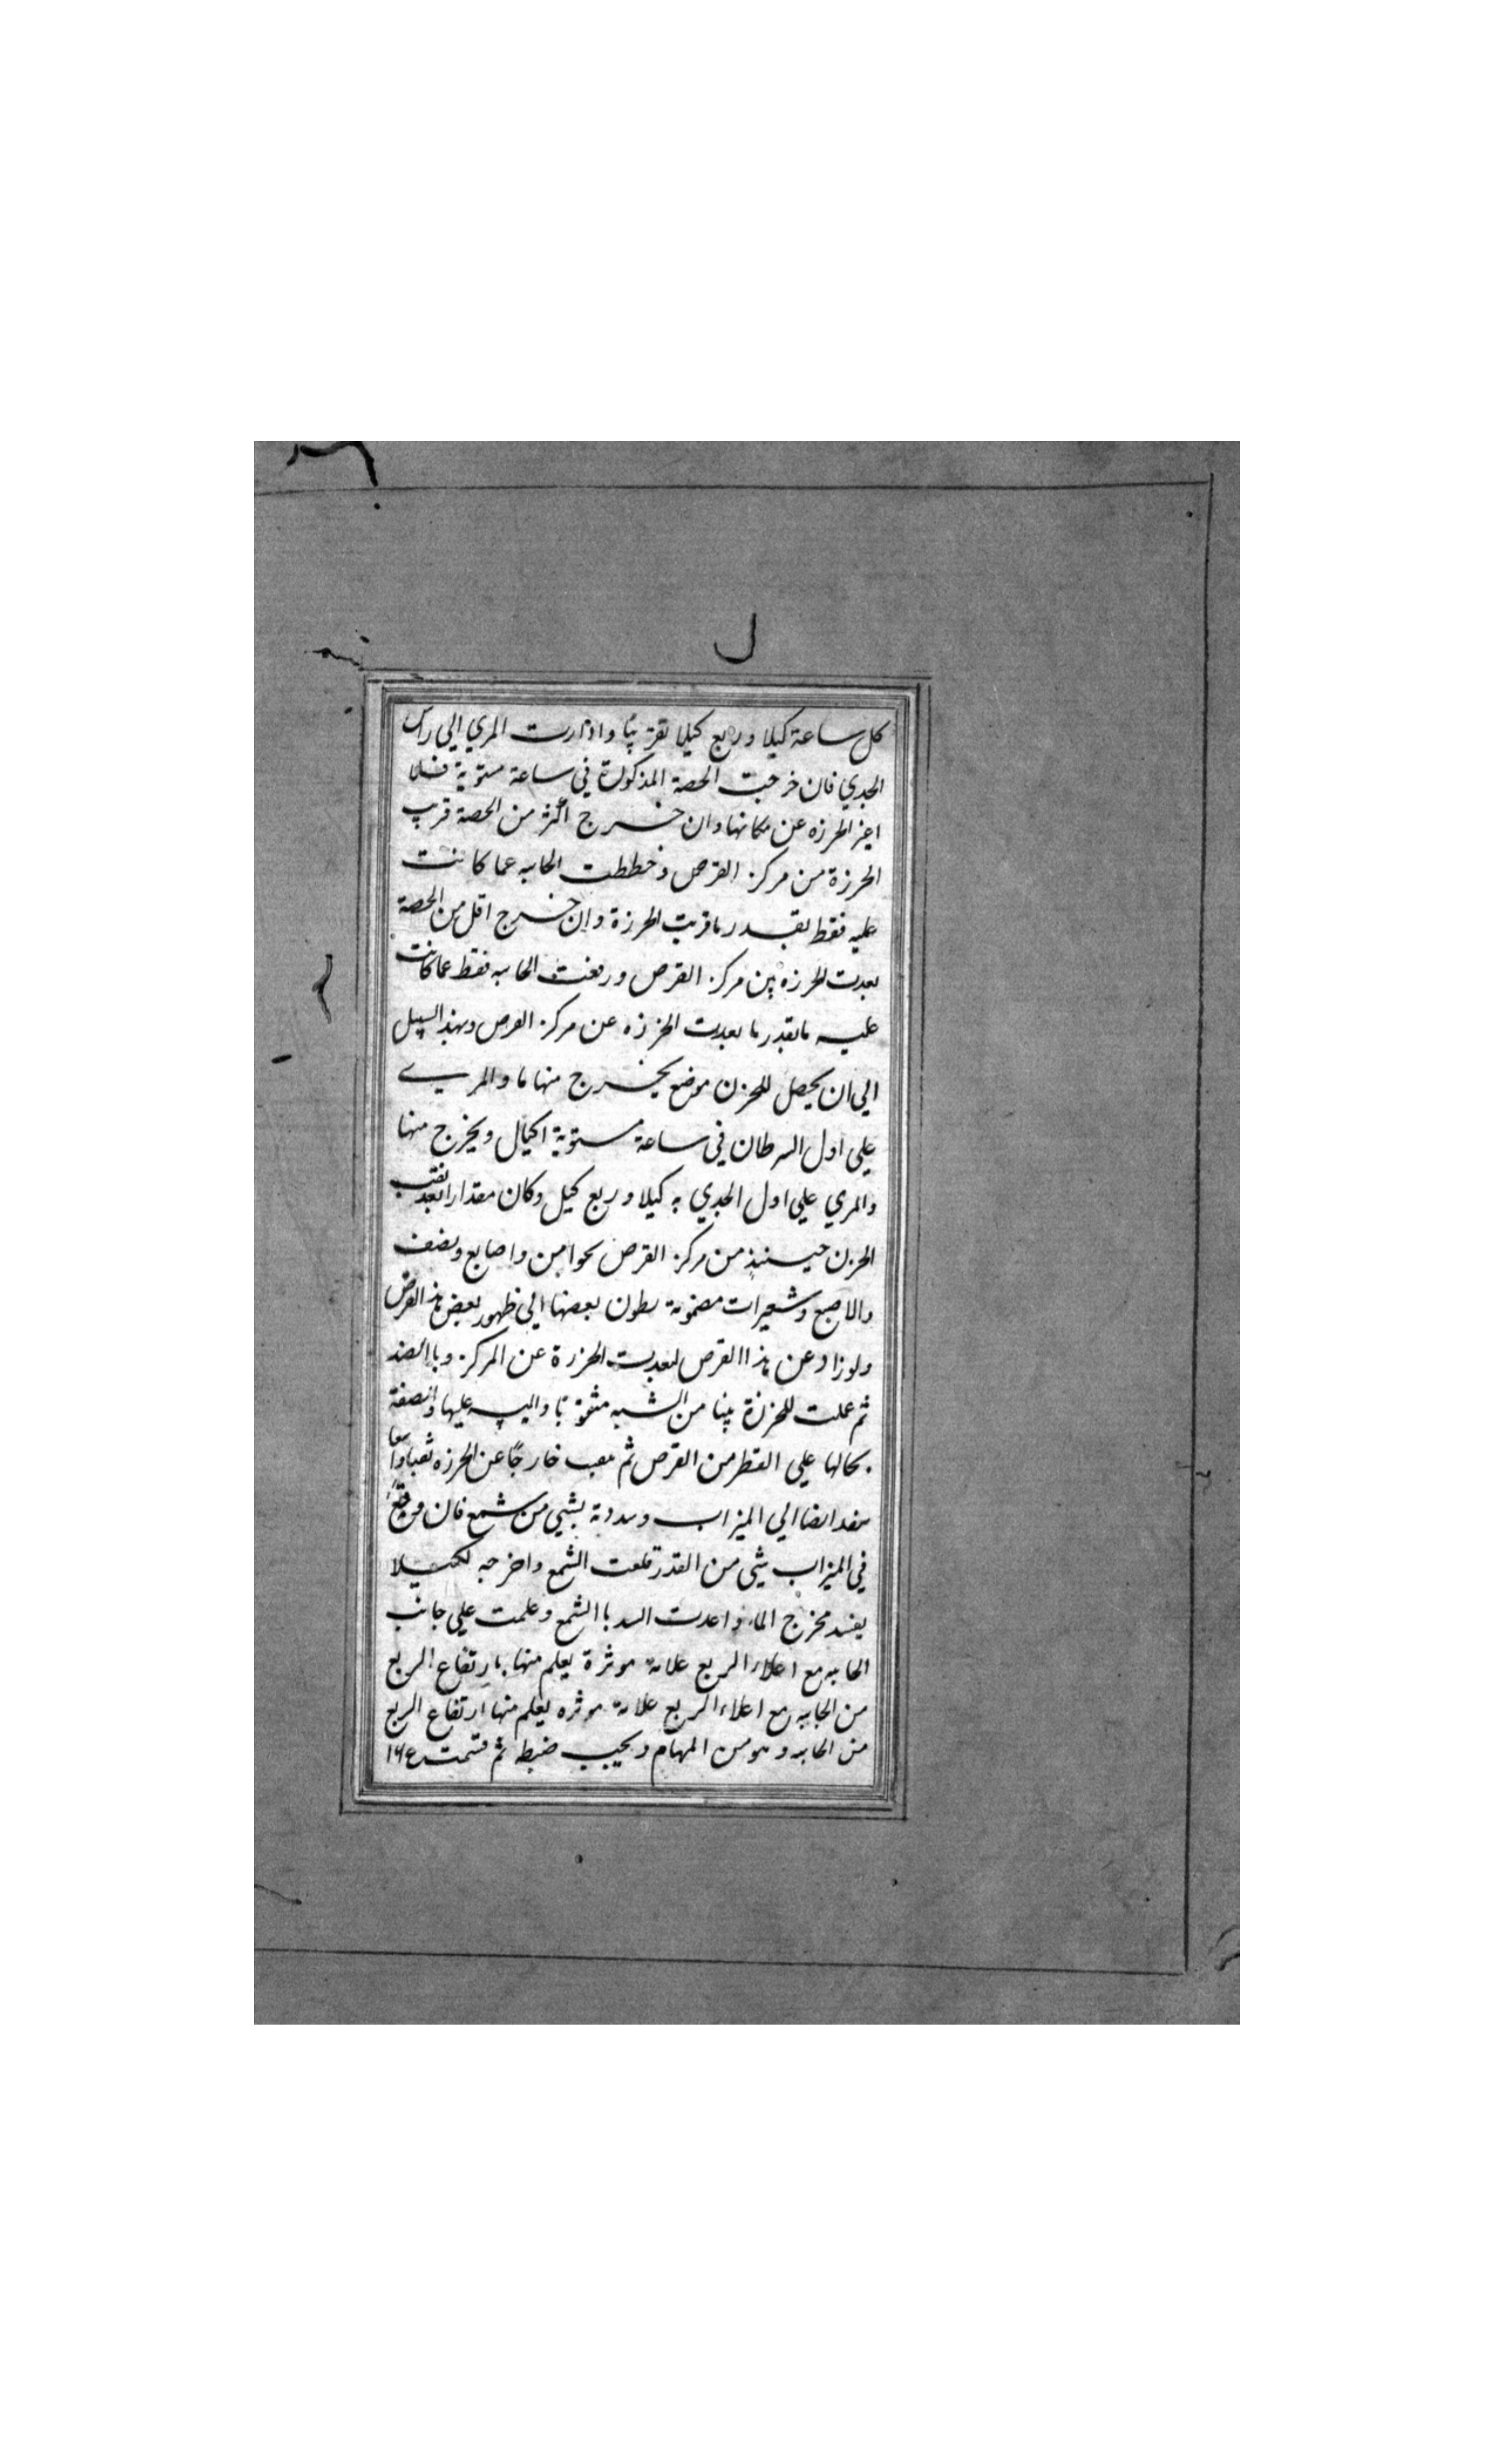 ل
كل ساعة كيلا وربع كيلا تقريبا وادارت المري الي راس
الجدي فان خرجت الحصة المذكورة في ساعة مستوية فلا
اغير الخرزه عن مكانها وان خرج اكثر من الحصة قرب
الخرزة من مركز القرص وخططت الحابه عما كانت
عليه فقط بقدر ما قربت الخرزة وان خرج اقل من الحصة
بعدت الخرزه من مركز القرص ورفعت الحابيه فقط عما كانت
عليه مابقدر ما بعدت الخرزه عن مركز القرص وبهذ السبيل
الي ان يحصل للخرزن موضع يخرج منها ما والمري
علي اول السرطان في ساعة مستوية اكيال ويخرج منها
والمري علي اول الجدي به كيلا وربع كيل وكان مقدار ابعد ثقب
الخرزن حيسنيذ من مركز القرص نحوا من واصابع ونصف
والاصبع وشعيرات مضمومة بطون بعضها الي ظهور بعض هذ القرص
ولو زاد عن هذا القرص لبعدت الخرزة عن المركز وباالضد
ثم عملت للخرزة بيتا من الشبه مثقوبا واليسه عليها والصقة
بحالها علي القطر من القرص ثم بعب خارجا عن الخرزه ثقبا واسعا
ينفد ايضا الي الميزاب وسددته بشيي من شمع فان وقع
في الميزاب شيي من القدر قلعت الشمع واخرجه لكيلا
يفسد مخرج الماء واعدت السد باالشمع وعلمت علي جانب
الحابيه مع اعلاء الربع علامة موثرة يعلم منها بارتفاع الربع
من الجابيه مع اعلاء الربع علامة موثره يعلم منها ارتفاع الربع
من الحابيه وهو من المهام ويجيب ضبطه ثم قسمت ١٦٤